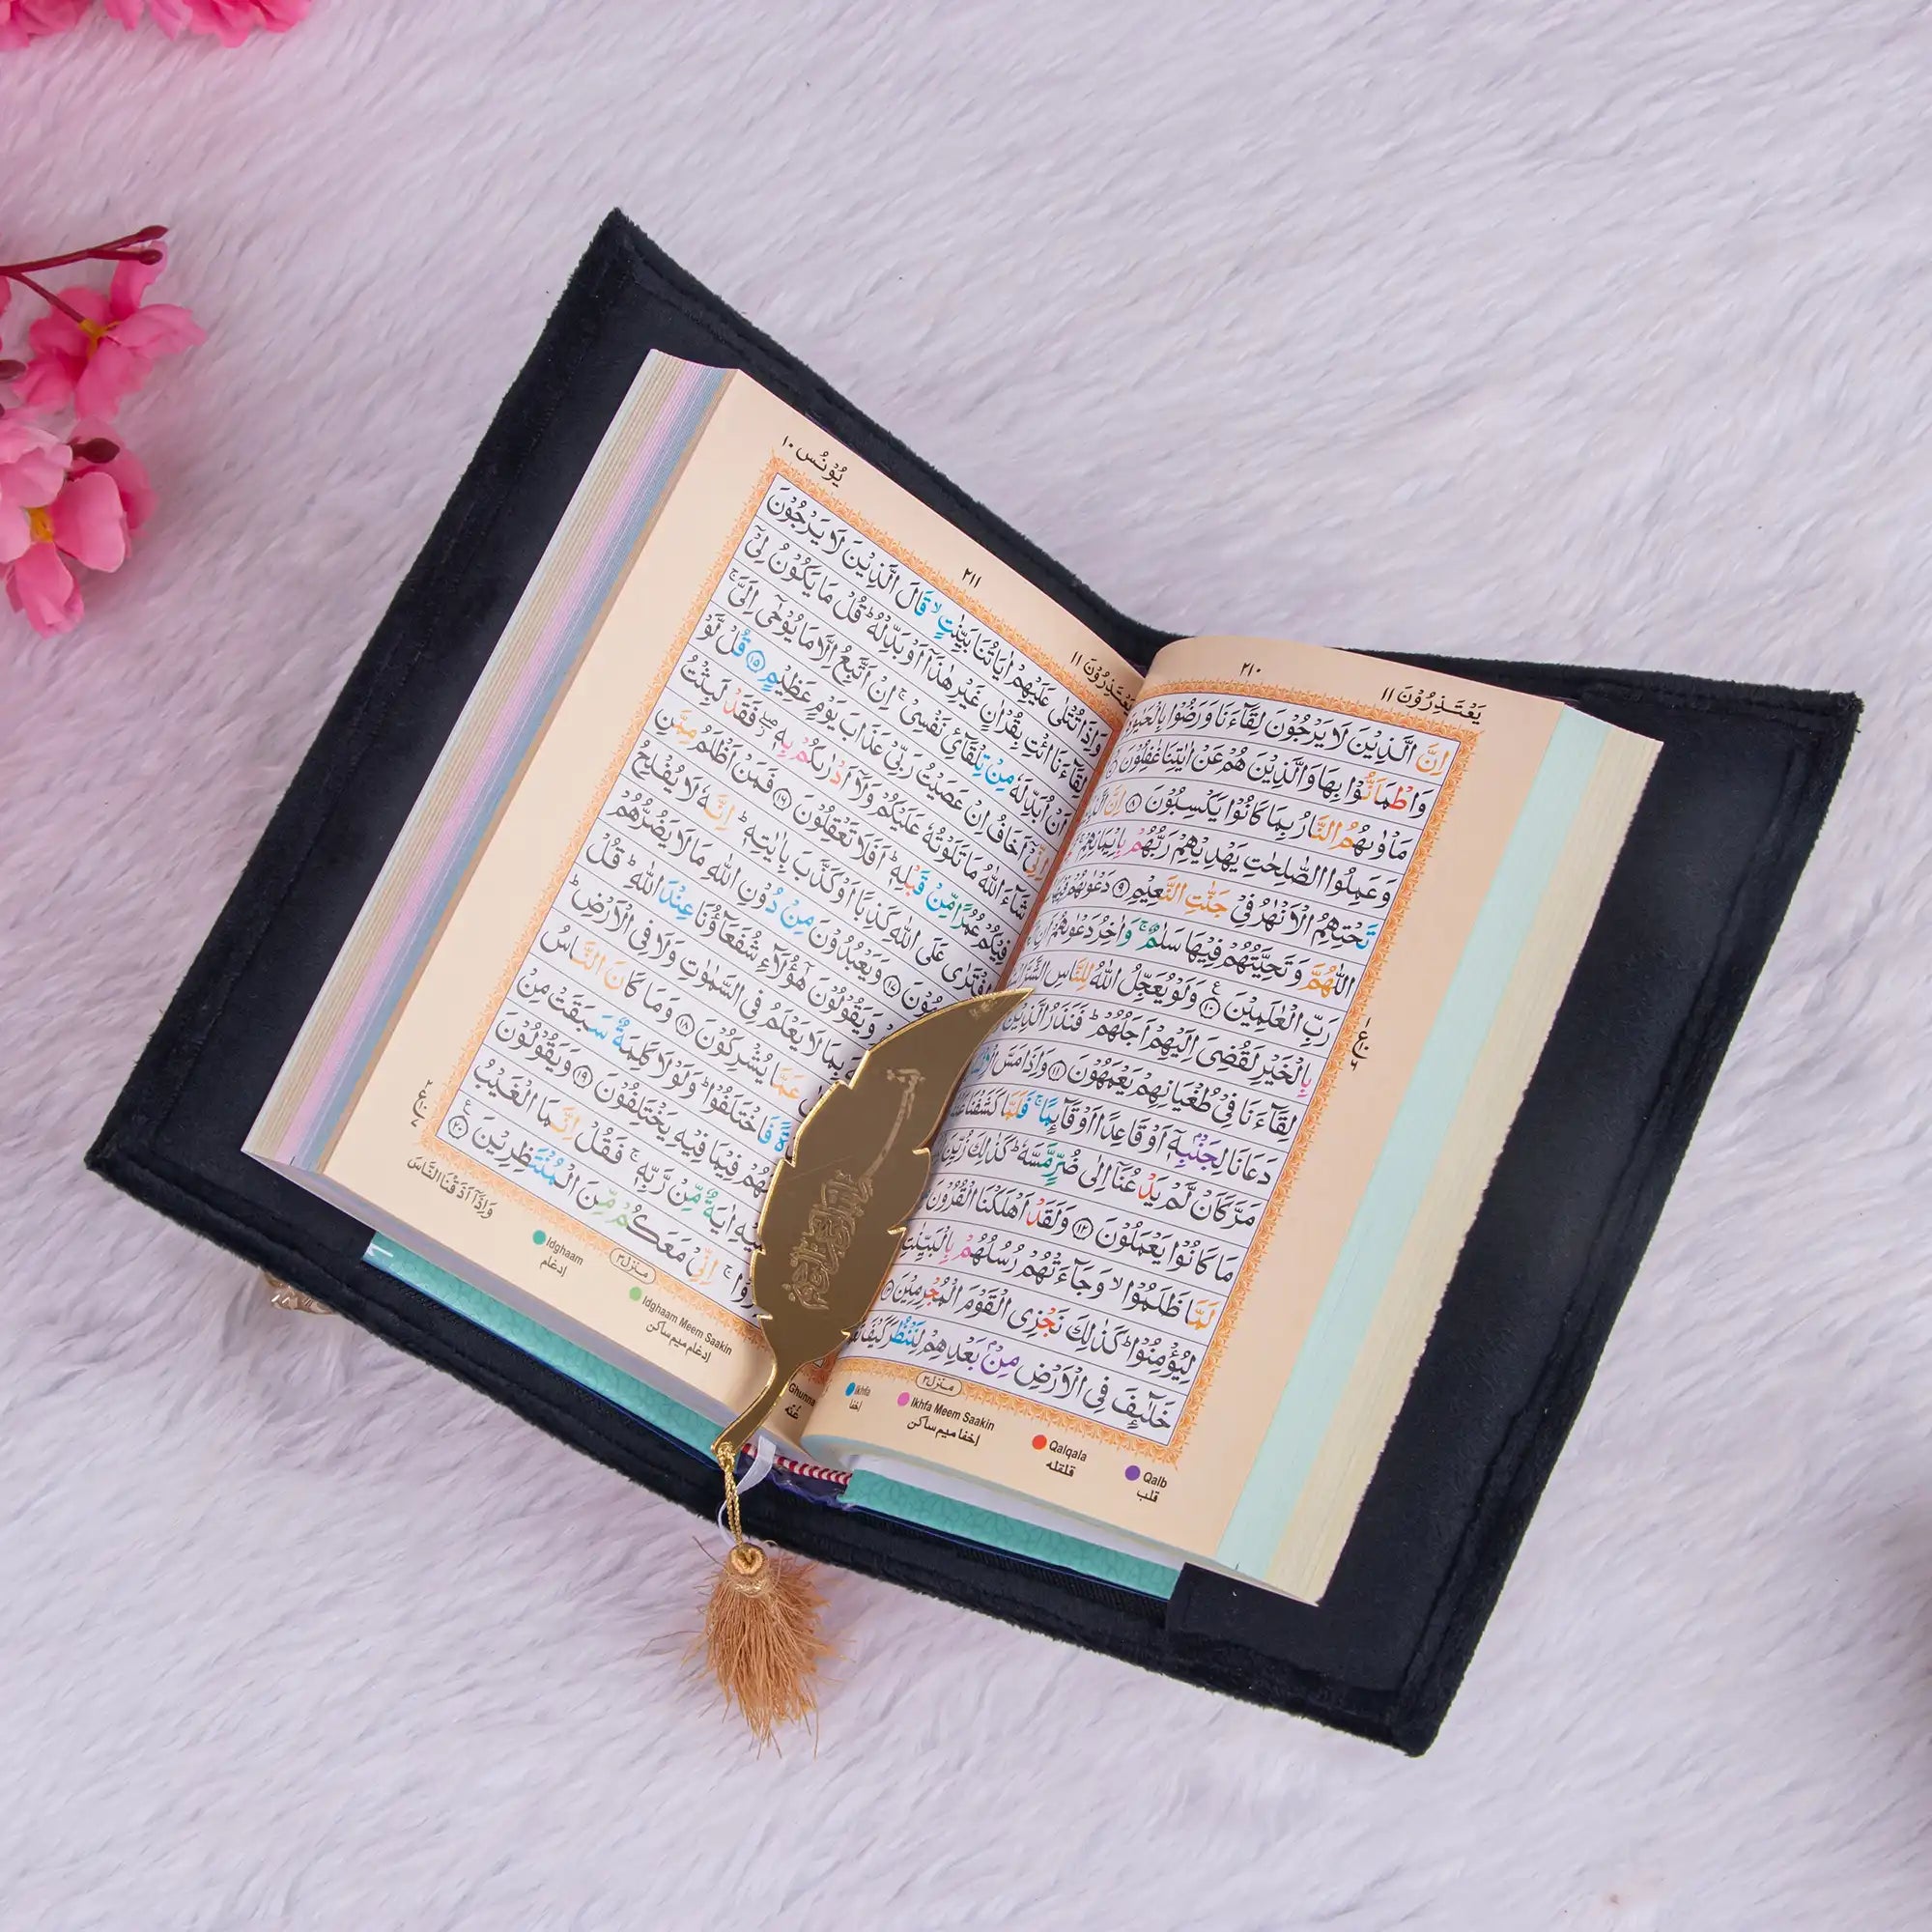 يَعْتَذِرُوْنَ ١١
٢١٠
اِنَّ الَّذِيْنَ لَا يَرْجُوْنَ لِقَآءَنَا وَرَضُوْا
وَاطْمَاَنُّوْا بِهَا وَالَّذِيْنَ هُمْ عَنْ اٰيٰتِنَا غٰفِلُوْنَ
مَاْوٰىهُمُ النَّارُ بِمَا كَانُوْا يَكْسِبُوْنَ ۝۸ اِنَّ
وَعَمِلُوا الصّٰلِحٰتِ يَهْدِيْهِمْ رَبُّهُمْ بِاِيْمَانِهِمْ
تَحْتِهِمُ الْاَنْهٰرُ فِيْ جَنّٰتِ النَّعِيْمِ ۝۹ دَعْوٰىهُمْ
اللّٰهُمَّ وَتَحِيَّتُهُمْ فِيْهَا سَلٰمٌ ۚ وَاٰخِرُ دَعْوٰىهُمْ
رَبِّ الْعٰلَمِيْنَ ۝۱۰ وَلَوْ يُعَجِّلُ اللّٰهُ لِلنَّاسِ
بِالْخَيْرِ لَقُضِيَ اِلَيْهِمْ اَجَلُهُمْ ؕ فَنَذَرُ الَّذِيْنَ
لِقَآءَنَا فِيْ طُغْيَانِهِمْ يَعْمَهُوْنَ ۝۱۱ وَاِذَا مَسَّ
دَعَانَا لِجَنْۢبِهٖٓ اَوْ قَاعِدًا اَوْ قَآئِمًا ۚ فَلَمَّا كَشَفْنَا
مَرَّ كَاَنْ لَّمْ يَدْعُنَآ اِلٰى ضُرٍّ مَّسَّهٗ ؕ كَذٰلِكَ زُيِّنَ
مَا كَانُوْا يَعْمَلُوْنَ ۝۱۲ وَلَقَدْ اَهْلَكْنَا الْقُرُوْنَ
لَمَّا ظَلَمُوْا ۙ وَجَآءَتْهُمْ رُسُلُهُمْ بِالْبَيِّنٰتِ
لِيُؤْمِنُوْا ؕ كَذٰلِكَ نَجْزِى الْقَوْمَ الْمُجْرِمِيْنَ
خَلٰٓئِفَ فِى الْاَرْضِ مِنْۢ بَعْدِهِمْ لِنَنْظُرَ كَيْفَ
منزل۳
Ikhfa
اِخفا
Ikhfa Meem Saakin
اِخفا میم ساکن
Qalqala
قلقله
Qalb
قلب
يَعْتَذِرُوْنَ ١١
٢١١
يُوْنُس ١٠
وَاِذَا تُتْلٰى عَلَيْهِمْ اٰيَاتُنَا بَيِّنٰتٍ ۙ قَالَ الَّذِيْنَ لَا يَرْجُوْنَ
لِقَآءَنَا ائْتِ بِقُرْاٰنٍ غَيْرِ هٰذَآ اَوْ بَدِّلْهُ ؕ قُلْ مَا يَكُوْنُ لِيْٓ
اَنْ اُبَدِّلَهٗ مِنْ تِلْقَآئِ نَفْسِيْ ۚ اِنْ اَتَّبِعُ اِلَّا مَا يُوْحٰٓى اِلَيَّ ۚ
اِنِّيْٓ اَخَافُ اِنْ عَصَيْتُ رَبِّيْ عَذَابَ يَوْمٍ عَظِيْمٍ ۝۱۵ قُلْ لَّوْ
شَآءَ اللّٰهُ مَا تَلَوْتُهٗ عَلَيْكُمْ وَلَآ اَدْرٰىكُمْ بِهٖ ۖ فَقَدْ لَبِثْتُ
فِيْكُمْ عُمُرًا مِّنْ قَبْلِهٖ ؕ اَفَلَا تَعْقِلُوْنَ ۝۱۶ فَمَنْ اَظْلَمُ مِمَّنِ
افْتَرٰى عَلَى اللّٰهِ كَذِبًا اَوْ كَذَّبَ بِاٰيٰتِهٖ ؕ اِنَّهٗ لَا يُفْلِحُ
۝۱۷ وَيَعْبُدُوْنَ مِنْ دُوْنِ اللّٰهِ مَا لَا يَضُرُّهُمْ
وَيَقُوْلُوْنَ هٰٓؤُلَآءِ شُفَعَآؤُنَا عِنْدَ اللّٰهِ ؕ قُلْ
بِمَا لَا يَعْلَمُ فِى السَّمٰوٰتِ وَلَا فِى الْاَرْضِ ؕ
عَمَّا يُشْرِكُوْنَ ۝۱۸ وَمَا كَانَ النَّاسُ
فَاخْتَلَفُوْا ؕ وَلَوْلَا كَلِمَةٌ سَبَقَتْ مِنْ
فِيْمَا فِيْهِ يَخْتَلِفُوْنَ ۝۱۹ وَيَقُوْلُوْنَ
اٰيَةٌ مِّنْ رَّبِّهٖ ۚ فَقُلْ اِنَّمَا الْغَيْبُ
اِنِّيْ مَعَكُمْ مِّنَ الْمُنْتَظِرِيْنَ ۝۲۰
وَاِذَآ اَذَقْنَا النَّاسَ
منزل۳
Idghaam
اِدغام
Idghaam Meem Saakin
اِدغام میم ساکن
غُنّه